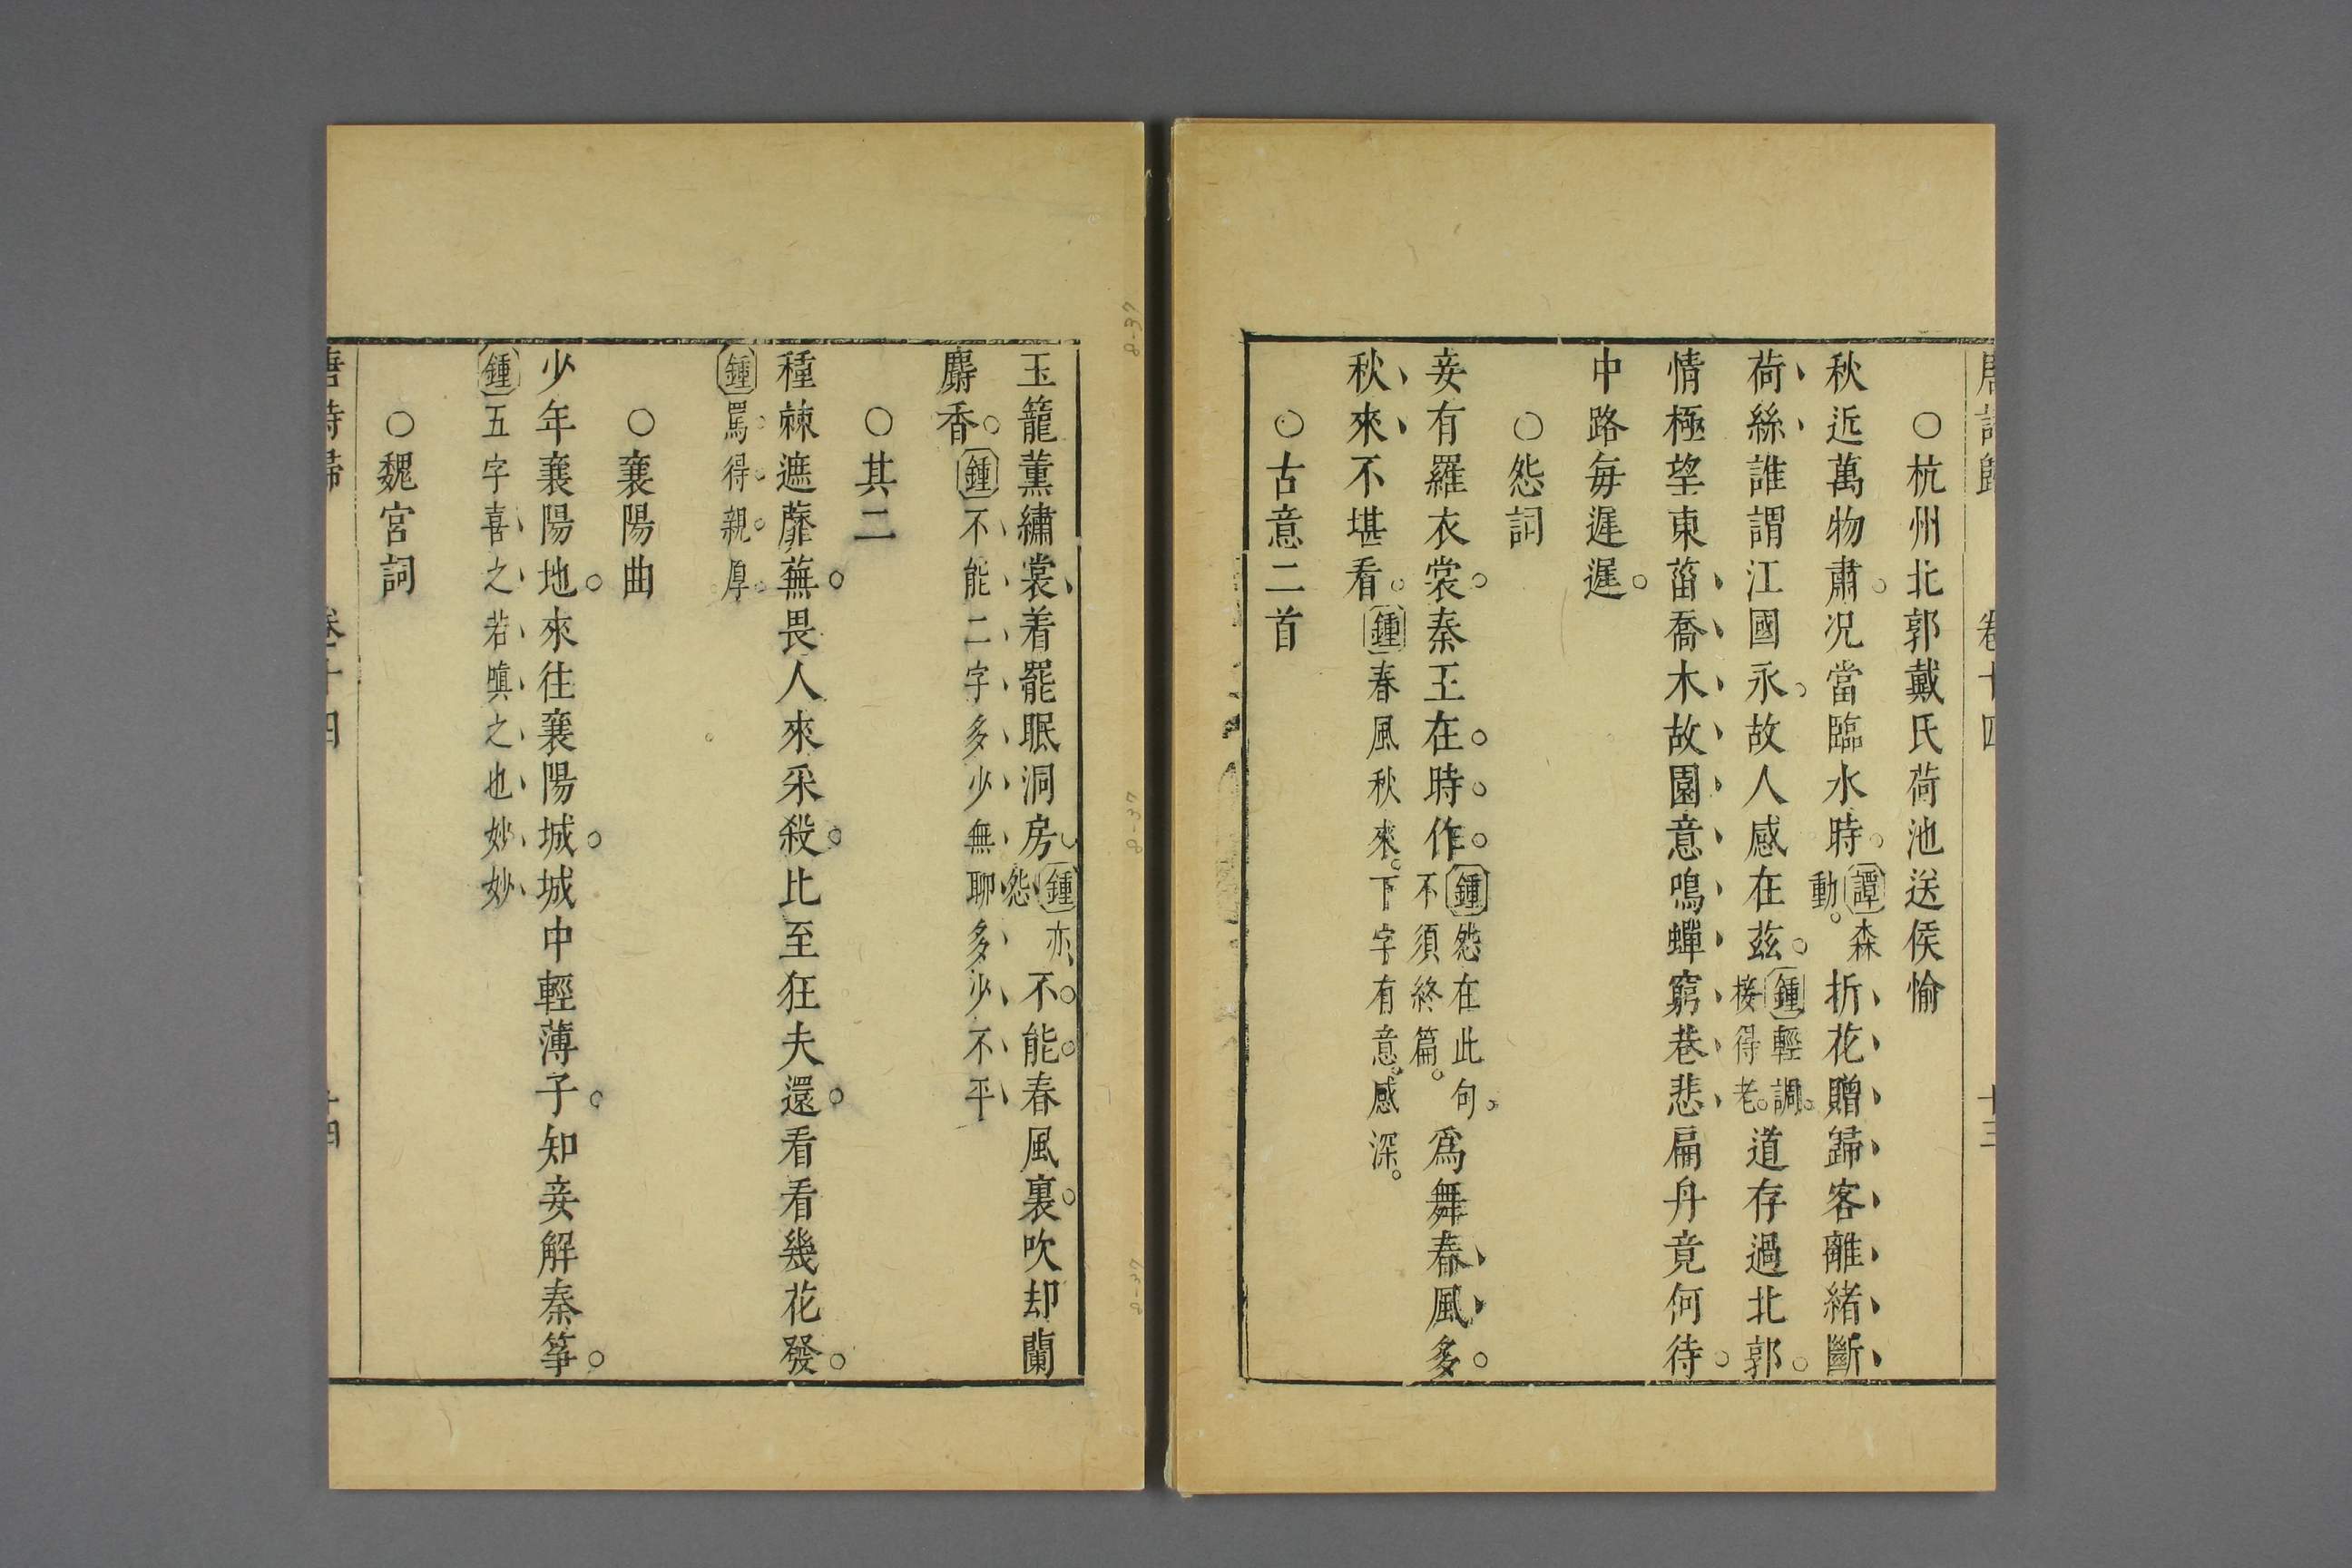 唐詩歸 卷十四 十三
○杭州北郭戴氏荷池送侯愉
秋近萬物肅。况當臨水時。譚森動。折花贈歸客離緒斷
荷絲誰謂江國永。故人感在茲。鍾輕調。接得老。道存過北郭。
情極望東菑喬木故園意鳴蟬窮巷悲扁舟竟何待。
中路每遲遲。
○怨詞
妾有羅衣裳。秦王在。時。作。鍾怨在此句。不須終篇。爲舞春風多。
秋來不堪看。鍾春風秋來。下字有意。感深。
○古意二首
玉籠薰繡裳着罷眠洞房鍾亦怨不。能。春風裏。吹却蘭
麝香。鍾不能二字多少無聊多少不平
○其二
種棘遮蘼蕪。畏人來采殺。比至狂夫還。看看幾花發。
鍾罵。得。親。厚。
○襄陽曲
少年襄陽地。來往襄陽城。城中輕薄子。知妾解秦筝。
鍾五字喜之若嗔之也妙妙
○魏宮詞
唐詩歸 卷十四 十四
8-37
8-37
8-37